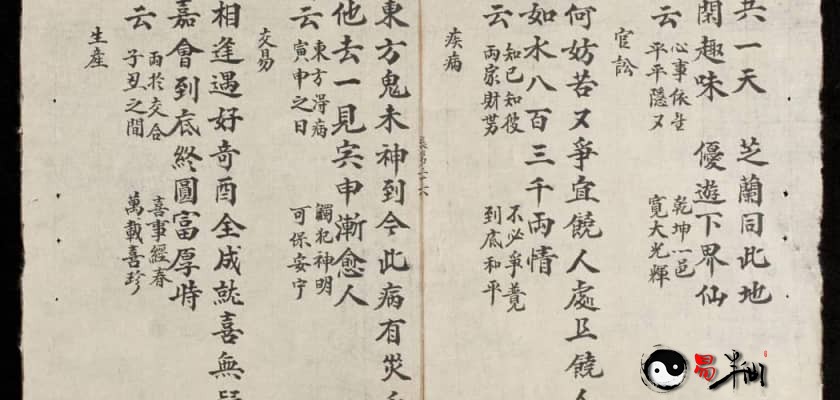 共一天　芝蘭同此地
閑趣味　優遊下界仙
云　心事依坐　乾坤一邑
平平隱又　寬大光輝
官訟
何妨若又爭宜饒人處且饒人
如水八百三千兩情
云　知已知彼　不必爭競
兩家財勞　到底和平
疾病
東方鬼未神到今此病有災
他去一見寅申漸愈人
云　東方得病　觸犯神明
寅申之日　可保安宁
交易
相逢遇好奇酉全成就喜無疑
嘉會到底終圓富厚時
云　兩於交合　喜事經春
子丑之間　萬載喜珍
生產
易半仙